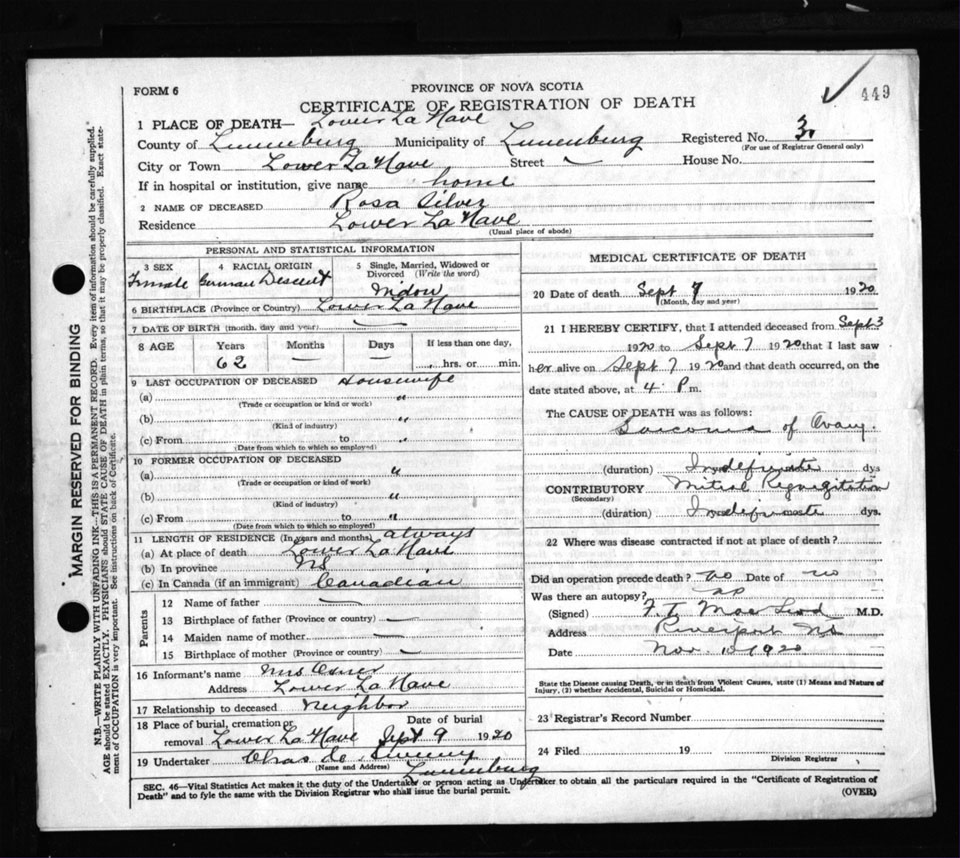 449
FORM 6
PROVINCE OF NOVA SCOTIA
CERTIFICATE OF REGISTRATION OF DEATH
1 PLACE OF DEATH— Lower La Have
County of Lunenburg Municipality of Lunenburg Registered No. 3
(For use of Registrar General only)
City or Town Lower La Have Street — House No.
If in hospital or institution, give name home
2 NAME OF DECEASED Rosa Silver
Residence Lower La Have
(Usual place of abode)
PERSONAL AND STATISTICAL INFORMATION
3 SEX 4 RACIAL ORIGIN 5 Single, Married, Widowed or Divorced (Write the word)
Female German Descent Widow
6 BIRTHPLACE (Province or Country) Lower La Have
7 DATE OF BIRTH (month, day and year) —
8 AGE Years Months Days If less than one day,
62 — — hrs. or min.
9 LAST OCCUPATION OF DECEASED Housewife
(a) "
(Trade or occupation or kind or work)
(b) "
(Kind of industry)
(c) From to "
(Date from which to which so employed)
10 FORMER OCCUPATION OF DECEASED
(a) "
(Trade or occupation or kind of work)
(b) "
(Kind of industry)
(c) From to "
(Date from which to which so employed)
11 LENGTH OF RESIDENCE (In years and months) always
(a) At place of death Lower La Have
(b) In province NS
(c) In Canada (if an immigrant) Canadian
Parents
12 Name of father —
13 Birthplace of father (Province or country) —
14 Maiden name of mother —
15 Birthplace of mother (Province or country) —
16 Informant's name Mrs
Address Lower La Have
17 Relationship to deceased Neighbor
18 Place of burial, cremation or removal Lower La Have Date of burial Sept 9 1920
19 Undertaker Chas
(Name and Address) Lunenburg
MEDICAL CERTIFICATE OF DEATH
20 Date of death Sept 7 1920
(Month, day and year)
21 I HEREBY CERTIFY, that I attended deceased from Sept 3
1920 to Sept 7 1920 that I last saw
her alive on Sept 7 1920 and that death occurred, on the
date stated above, at 4 P m.
The CAUSE OF DEATH was as follows:
Sarcoma of Ovary.
(duration) Indefinite dys
CONTRIBUTORY Mitral Regurgitation
(Secondary)
(duration) Indefinite dys.
22 Where was disease contracted if not at place of death?
Did an operation precede death? no Date of no
Was there an autopsy? no
(Signed) F. T. MacLeod M.D.
Address Riverport NS
Date Nov. 10 1920
State the Disease causing Death, or in death from Violent Causes, state (1) Means and Nature of
Injury, (2) whether Accidental, Suicidal or Homicidal.
23 Registrar's Record Number
24 Filed 19
Division Registrar
SEC. 46—Vital Statistics Act makes it the duty of the Undertaker or person acting as Undertaker to obtain all the particulars required in the "Certificate of Registration of
Death" and to fyle the same with the Division Registrar who shall issue the burial permit. (OVER)
MARGIN RESERVED FOR BINDING
N.B.—WRITE PLAINLY WITH UNFADING INK—THIS IS A PERMANENT RECORD. Every item of information should be carefully supplied.
AGE should be stated EXACTLY. PHYSICIANS should STATE CAUSE OF DEATH in plain terms, so that it may be properly classified. Exact state-
ment of OCCUPATION is very important. See instructions on back of Certificate.